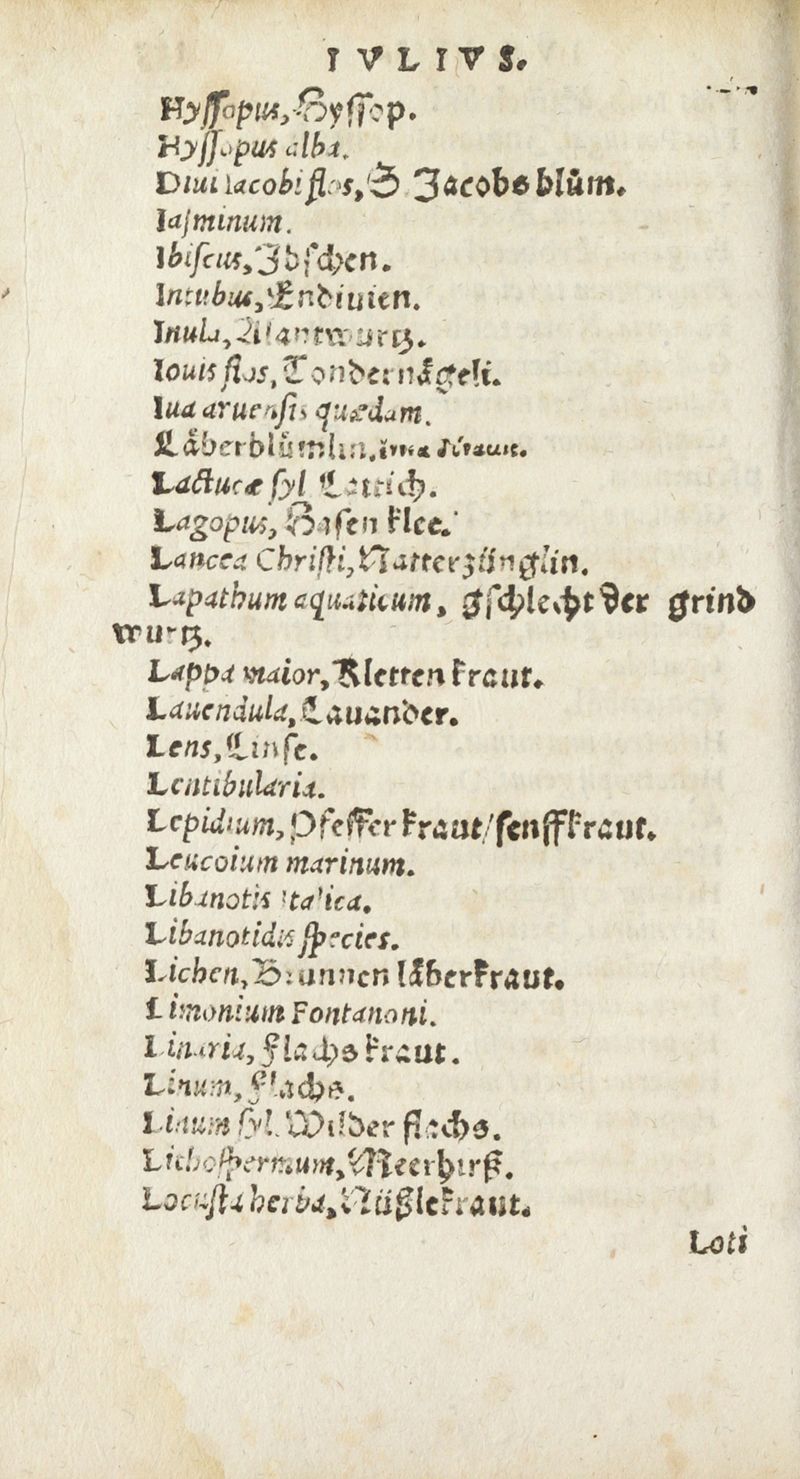 IVLIVS.
Hyſſopus, Hyſſop.
Hyſſopus alba.
Diui Iacobi flos, S Jacobs blům.
Iaſminum.
Ibiſcus, Jbſchen.
Intubus, Endiuien.
Inula, Alantwurtz.
Iouis flos, Tondernägeli.
Iua aruenſis quædam.
Läberblůmlin.
Lactucæ ſyl. Lattich.
Lagopus, Haſen klee.
Lancea Chriſti, Natterzünglin.
Lapathum aquaticum, gſchlecht der grind
wurtz.
Lappa maior, Kletten kraut.
Lauendula, Lauander.
Lens, Linſe.
Lentibularia.
Lepidium, Pfeffer kraut/ſenffkraut.
Leucoium marinum.
Libanotis Italica.
Libanotidis ſpecies.
Lichen, Brunnen läberkraut.
Limonium Fontanoni.
Linaria, Flachs kraut.
Linum, Flachs.
Linum ſyl. Wilder flachs.
Lithoſpermum, Meerhirß.
Locuſta herba, Nüßlekraut.
Loti